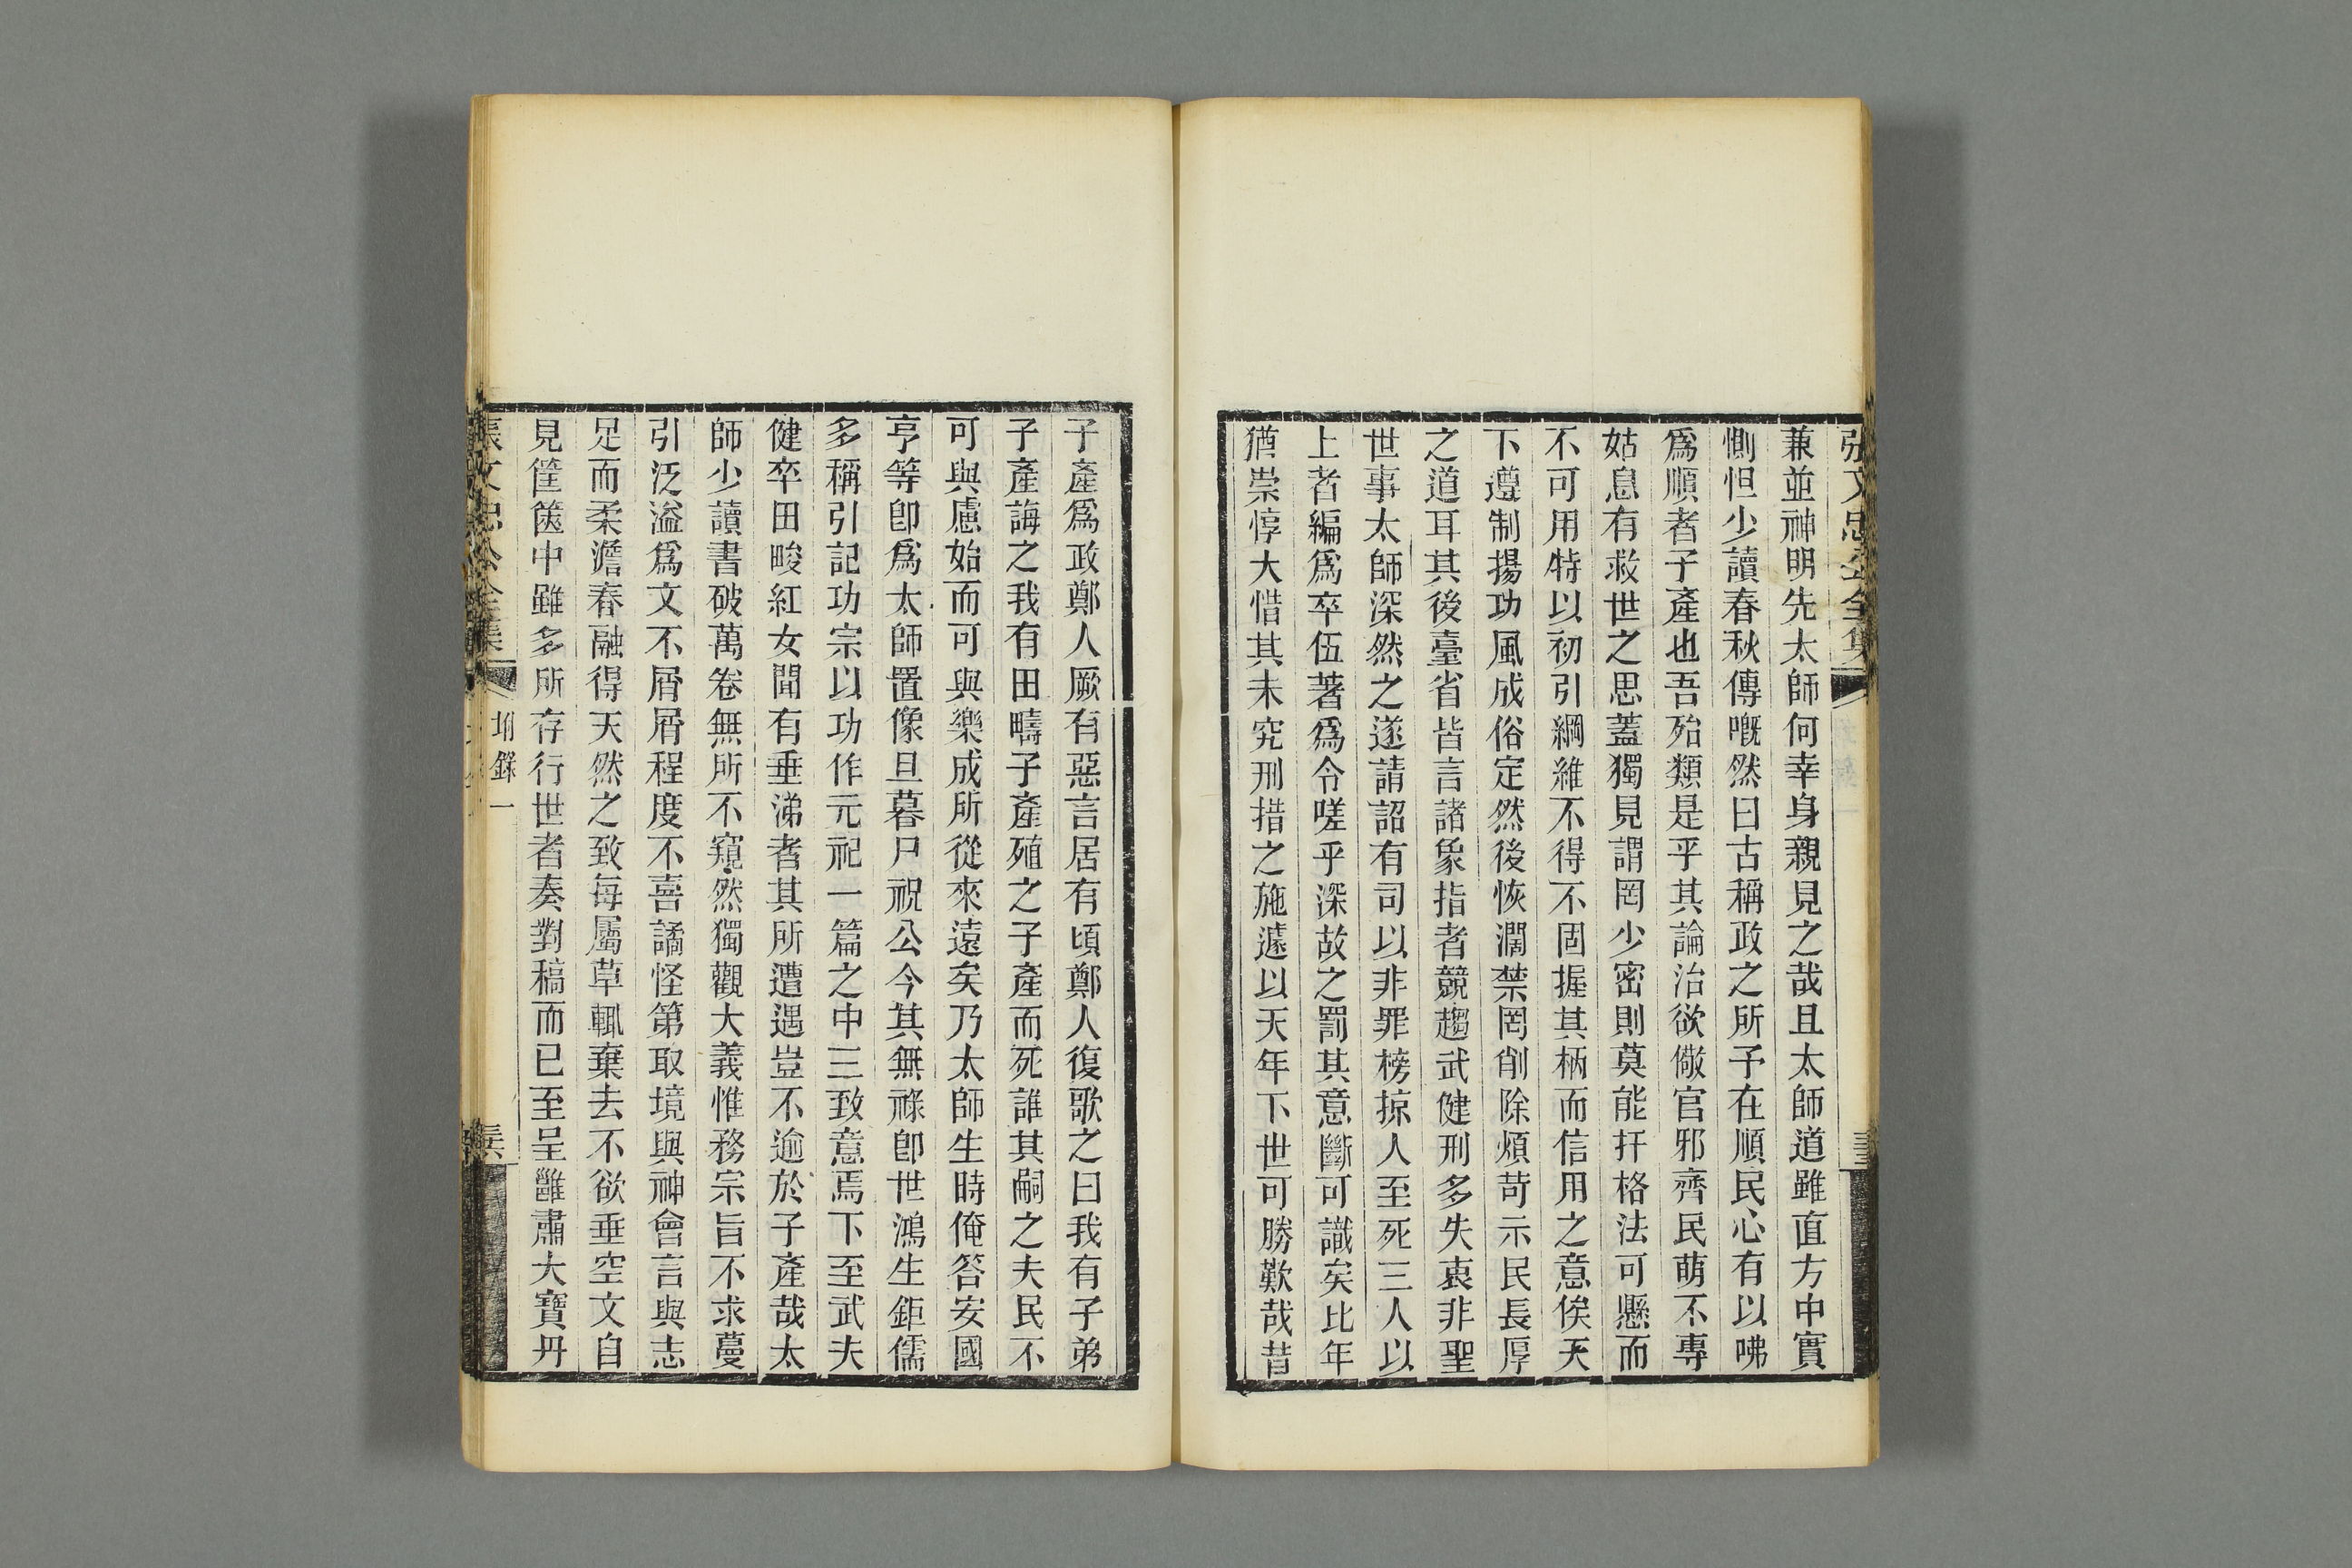 張文忠公全集
兼並神明先太師何幸身親見之哉且太師道雖直方中實
惻怛少讀春秋傳嘅然曰古稱政之所予在順民心有以咈
爲順者子產也吾殆類是乎其論治欲儆官邪齊民萌不專
姑息有救世之思蓋獨見謂罔少密則莫能扞格法可懸而
不可用特以初引綱維不得不固握其柄而信用之意俟天
下遵制揚功風成俗定然後恢濶禁罔削除煩苛示民長厚
之道耳其後臺省皆言諸象指者競趨武健刑多失衷非聖
世事太師深然之遂請詔有司以非罪榜掠人至死三人以
上者編爲卒伍著爲令嗟乎深故之罰其意斷可識矣比年
猶崇惇大惜其未究刑措之施遽以天年下世可勝歎哉昔
子產爲政鄭人厥有惡言居有頃鄭人復歌之曰我有子弟
子產誨之我有田疇子產殖之子產而死誰其嗣之夫民不
可與慮始而可與樂成所從來遠矣乃太師生時俺答安國
亨等卽爲太師置像旦暮尸祝公今其無祿卽世鴻生鉅儒
多稱引記功宗以功作元祀一篇之中三致意焉下至武夫
健卒田畯紅女聞有垂涕者其所遭遇豈不逾於子產哉太
師少讀書破萬卷無所不窺然獨觀大義惟務宗旨不求蔓
引泛溢爲文不屑屑程度不喜譎怪第取境與神會言與志
足而柔澹春融得天然之致每屬草輒棄去不欲垂空文自
見筐篋中雖多所存行世者奏對稿而已至呈讎肅大寶丹
張文忠公全集
坿錄一